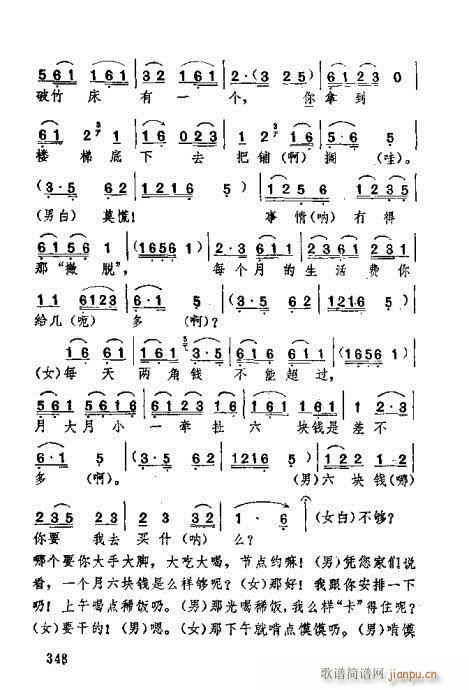 5 6 1 1 6 1 | 3 2 1 6 1 | 2 · (3 2 5) | 6 1 2 3 0 |
破竹 床 有 一 个, 你 拿 到
6 1 2 3 2 1 | 1 6 0 2 3 | 2 1 6 | 5 · 6 5 |
楼 梯 底 下 去 把 铺 (啊) 搁 (哇)。
(3 · 5 6 2 | 1 2 1 6 5) | 1 2 5 6 | 1 2 3 5 |
(男白) 莫慌! 事 情 (呐) 冇 得
6 1 5 6 | (1 6 5 6 1) | 2 · 3 6 1 1 | 3 6 1 2 3 1 |
那 “撇 脱”, 每 个 月 的 生 活 费 你
1 1 6 1 2 3 | 6 · 1 5 | (3 · 5 6 2 | 1 2 1 6 5) |
给 几 (呃) 多 (啊)?
1 6 6 1 | 2 2 1 | 3 · 5 6 6 1 | (1 6 5 6 1) |
(女) 每 天 两 角 钱 不 能 超 过,
5 6 1 5 6 1 6 | 6 1 2 3 1 6 | 1 6 1 6 1 | 2 · 3 |
月 大 月 小 一 牵 扯 六 块 钱 是 差 不
6 · 1 5 | (3 · 5 6 2 | 1 2 1 6 5) | 5 3 5 |
多 (啊)。 (男) 六 块 钱 (哪)
2 3 5 2 3 5 | 2 3 2 | 1 · 6 | (女白) 不够?
你 要 我 去 买 什 (呐) 么?
哪个要你大手大脚,大吃大喝,节点约嘛!(男)凭您家们说
看,一个月六块钱是么样够呢?(女)那好!我跟你安排一下
吵!上午喝点稀饭吵。(男)那光喝稀饭,我么样“卡”得住呢?
(女)要干的!(男)嗯。(女)那下午就啃点馍馍吵。(男)啃馍
348
歌谱简谱网
jianpu.cn